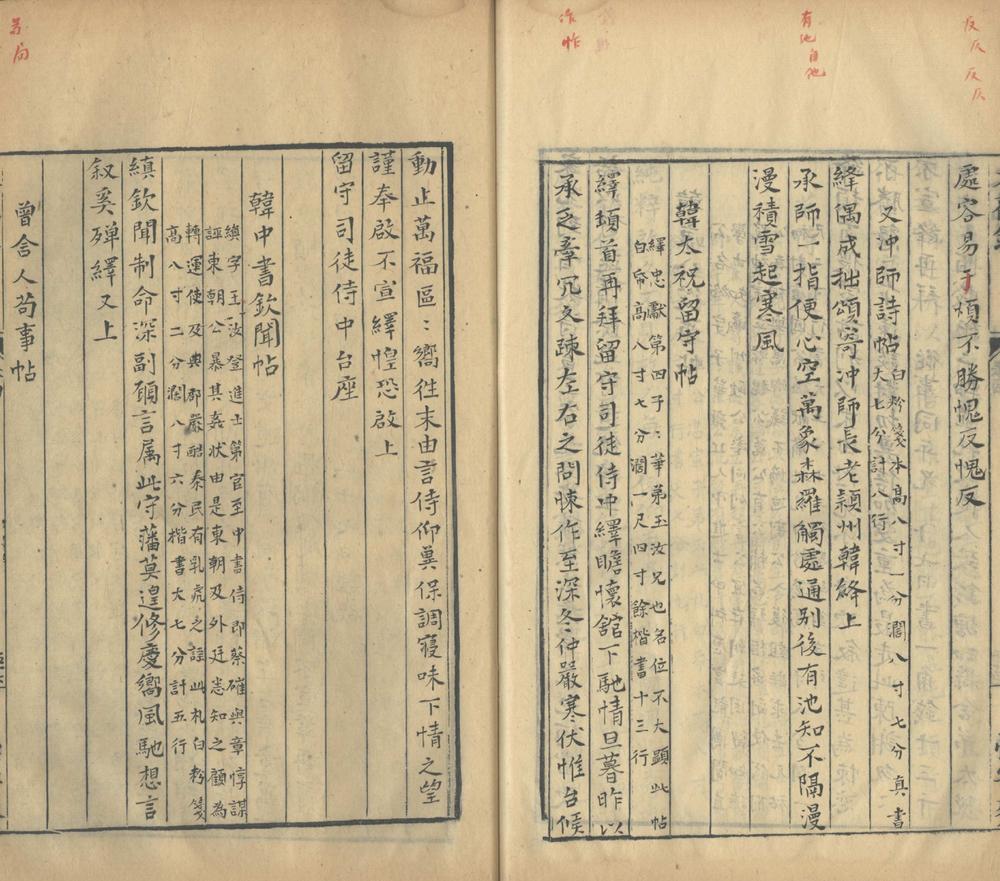 反仄 反仄
有池 自他
作 怍
苟 局
處容易于煩不勝愧反愧反
又冲師詩帖白粉箋本高八寸一分濶八寸七分真書
大七分計八行
絳偶成拙頌寄冲師長老潁州韓絳上
承師一指便心空萬象森羅觸處通别後有池知不隔漫
漫積雪起寒風
韓太祝留守帖
繹忠獻第四子〻華弟玉汝兄也名位不大顯此帖
白帋高八寸七分濶一尺四寸餘楷書十三行
繹頓首再拜留守司徒侍中繹瞻懷舘下馳情旦暮昨以
承乏牽冗久疎左右之問悚作至深冬仲嚴寒伏惟台候
動止萬福區〻嚮徃末由言侍仰兾保調寢味下情之望
謹奉啟不宣繹惶恐啟上
留守司徒侍中台座
韓中書欽聞帖
縝字玉汝登進士第官至中書侍郎蔡確與章惇謀
誣東朝公暴其姦狀由是東朝及外廷悉知之顧為
轉運使及典郡嚴酷秦民有乳虎之謡此札白粉箋
高八寸二分濶八寸六分楷書大七分計五行
縝欽聞制命深副碩言属此守藩莫遑修慶嚮風馳想言
叙奚殫繹又上
曾舍人苟事帖